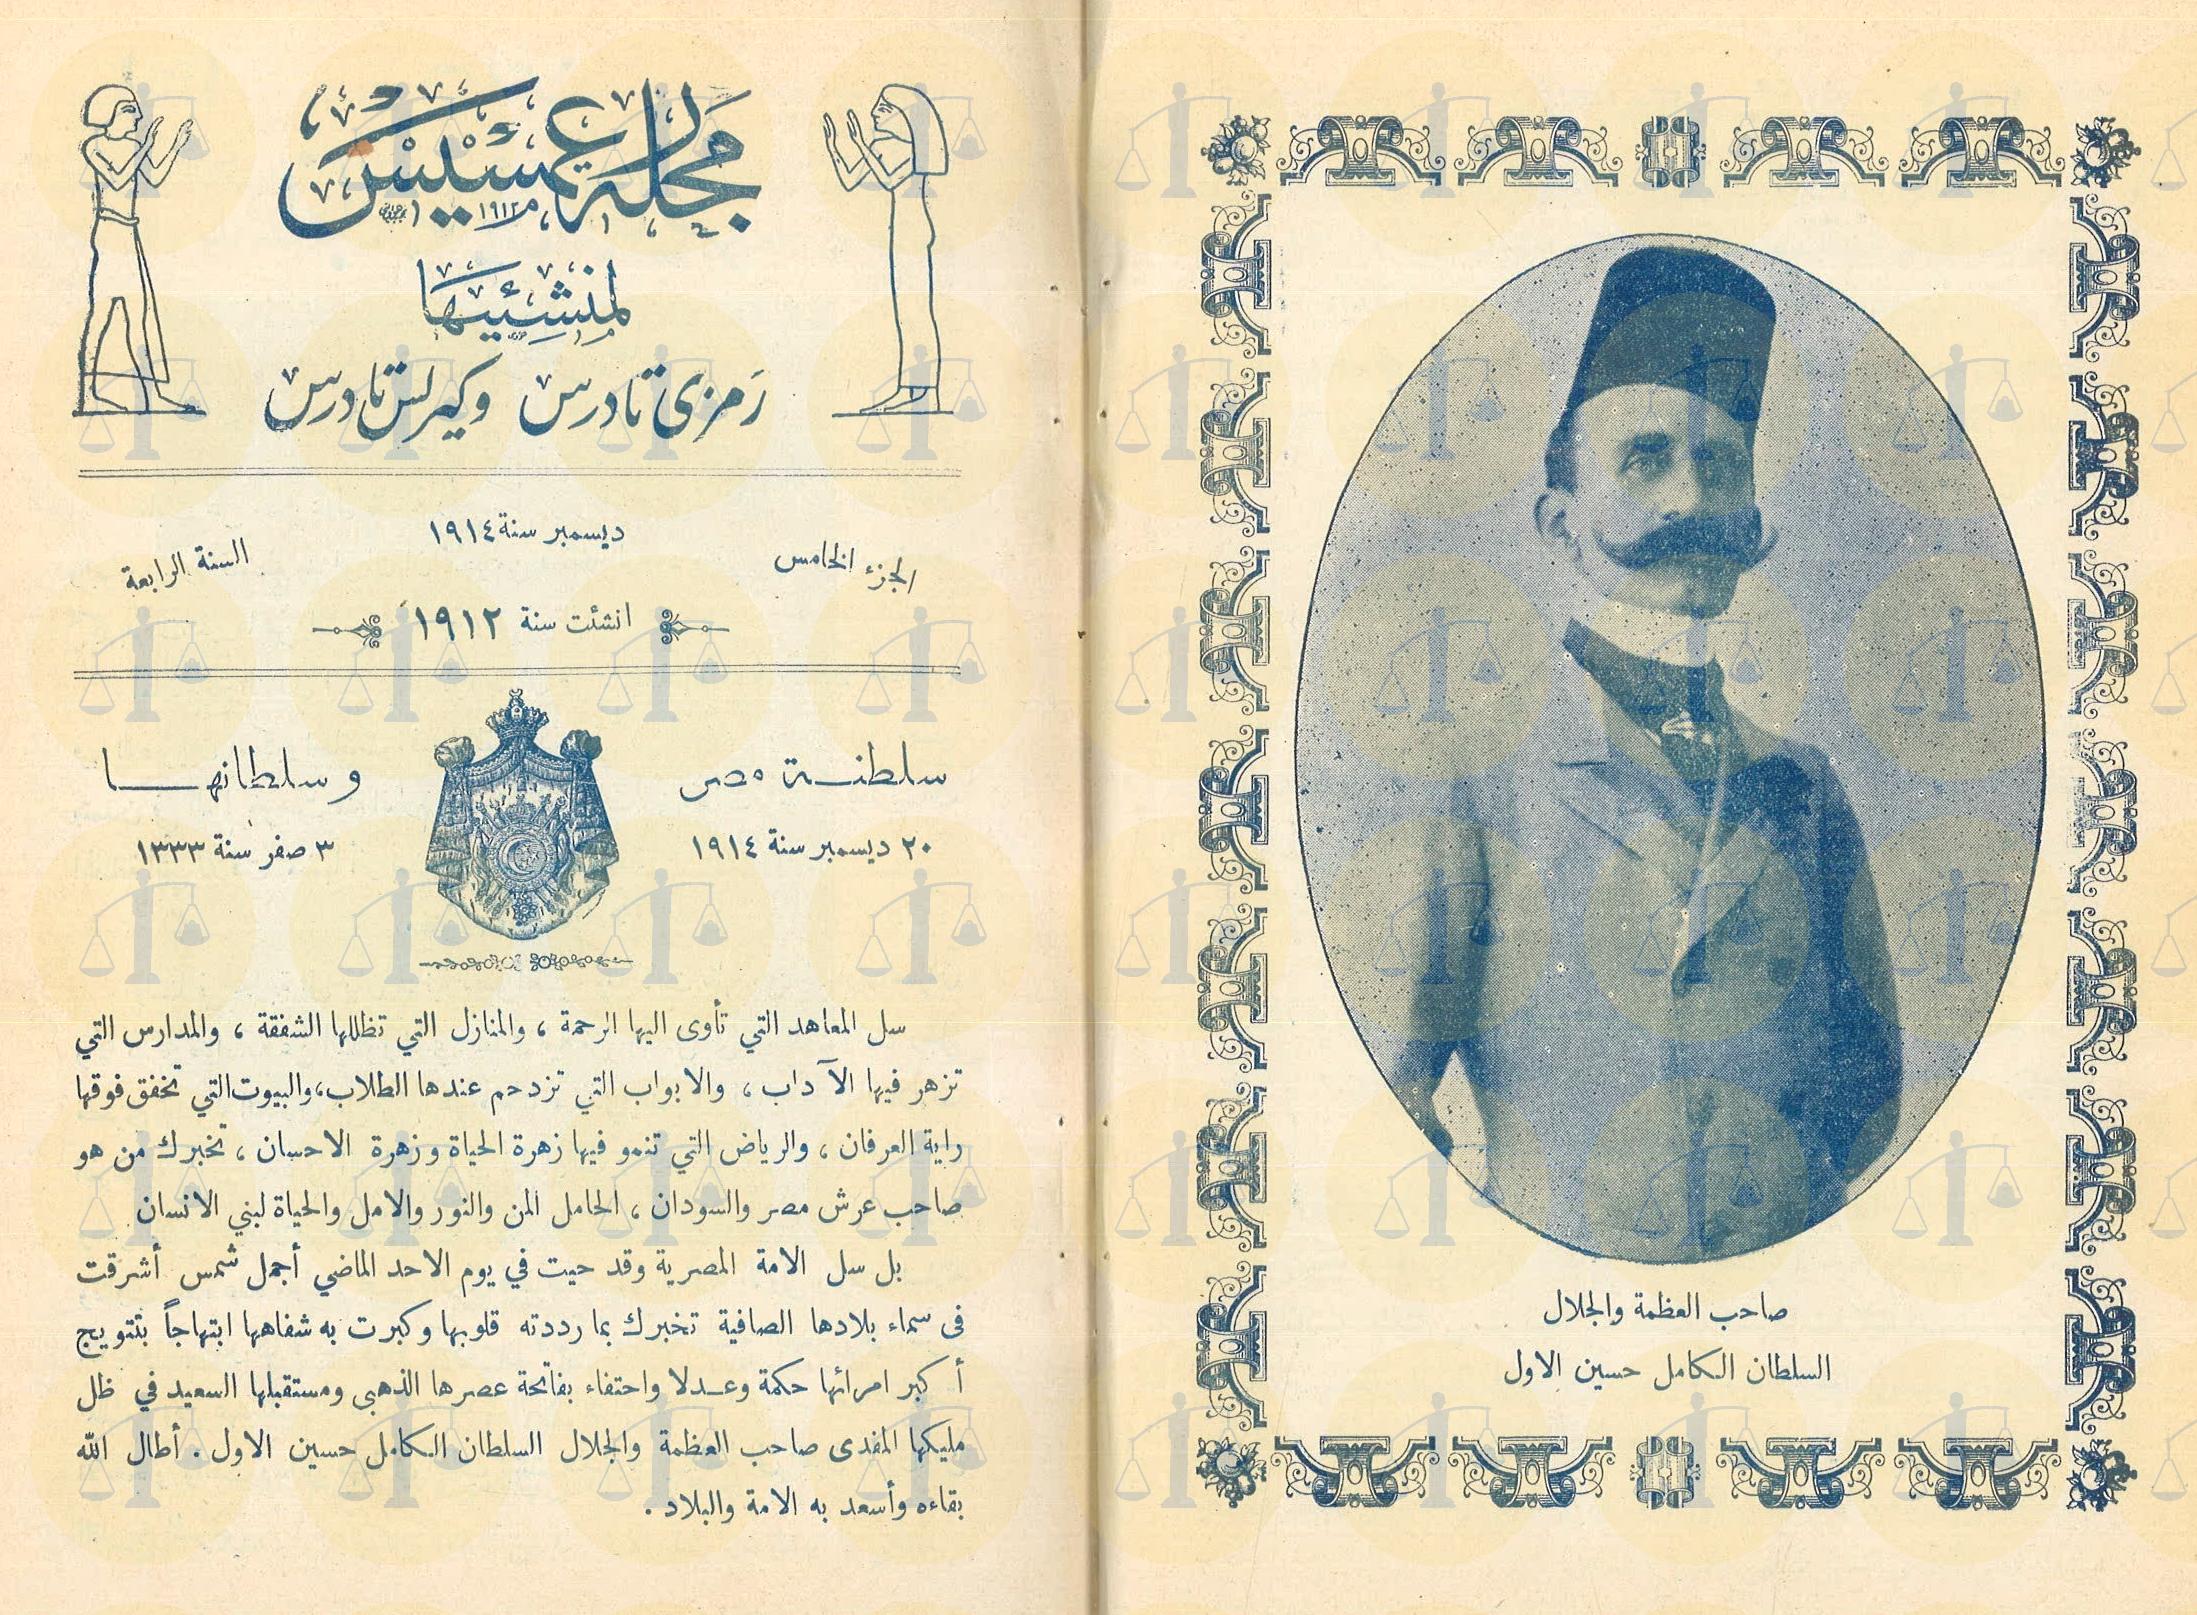 صاحب العظمة والجلال
السلطان الكامل حسين الاول
مجلة رعمسيس
١٩١٢
لمنشئيها
رمزى تادرس وكيرلس تادرس
الجزء الخامس
ديسمبر سنة ١٩١٤
السنة الرابعة
انشئت سنة ١٩١٢
سلطنة مصر وسلطانها
٢٠ ديسمبر سنة ١٩١٤
٣ صفر سنة ١٣٣٣
سل المعاهد التي تأوى اليها الرحمة ، والمنازل التي تظللها الشفقة ، والمدارس التي
تزهر فيها الآداب ، والابواب التي تزدحم عندها الطلاب ، والبيوت التي تخفق فوقها
راية العرفان ، والرياض التي تنمو فيها زهرة الحياة وزهرة الاحسان ، تخبرك من هو
صاحب عرش مصر والسودان ، الحامل المن والنور والامل والحياة لبني الانسان
بل سل الامة المصرية وقد حيت في يوم الاحد الماضي أجمل شمس أشرقت
فى سماء بلادها الصافية تخبرك بما رددته قلوبها وكبرت به شفاهها ابتهاجاً بتتويج
أكبر امرائها حكمة وعدلا واحتفاء بفاتحة عصرها الذهبى ومستقبلها السعيد في ظل
مليكها المفدى صاحب العظمة والجلال السلطان الكامل حسين الاول . أطال الله
بقاءه وأسعد به الامة والبلاد .